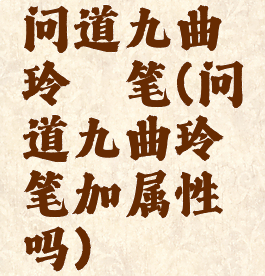 问道九曲
玲 笔(问
道九曲玲
笔加属性
吗)